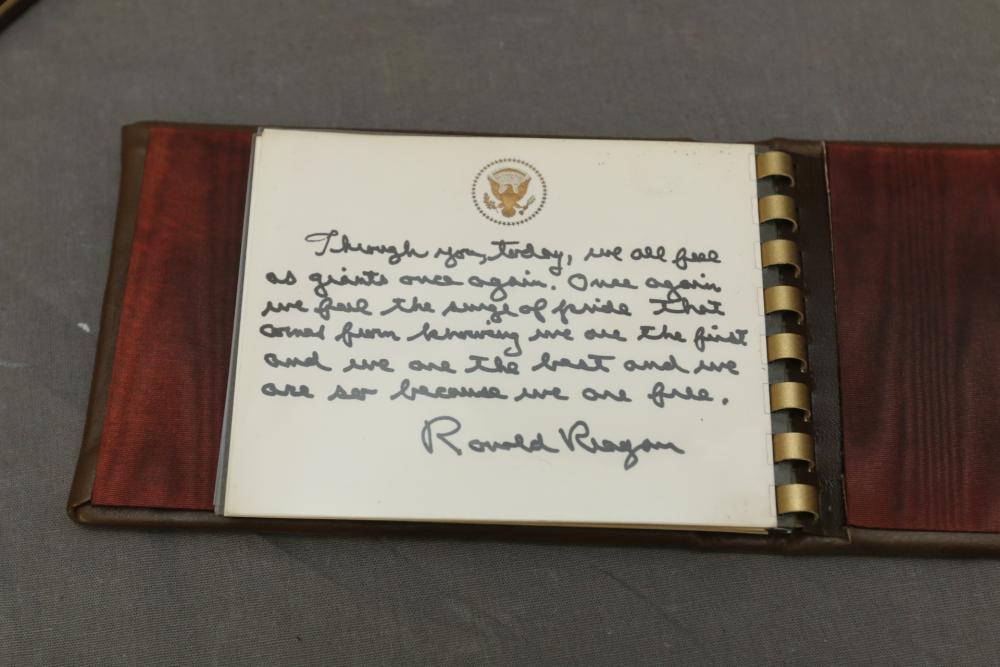 Through you, today, we all feel
as giants once again. Once again
we feel the surge of pride that
comes from knowing we are the first
and we are the best and we
are so because we are free.
Ronald Reagan